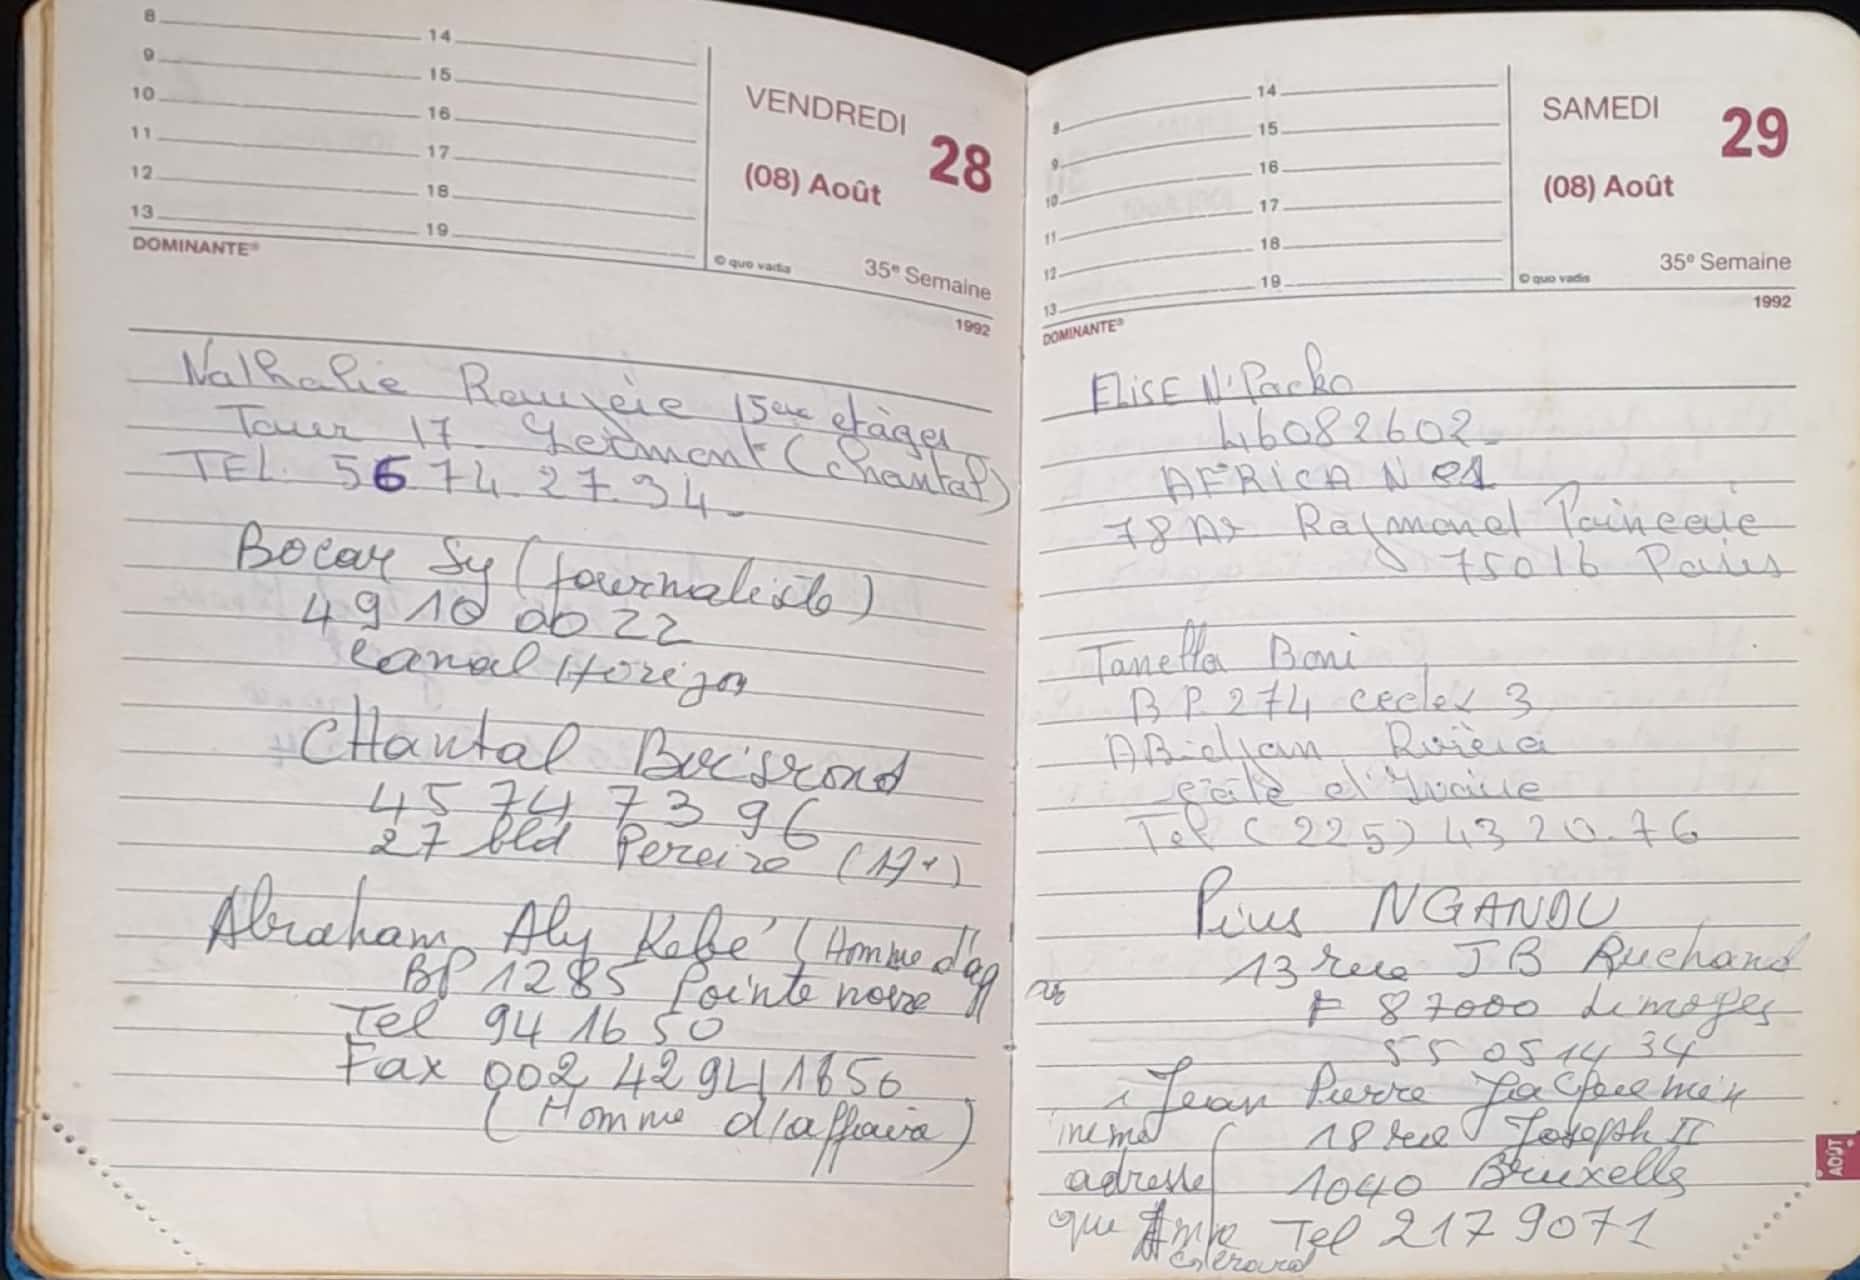 8 14
9 15
10 16
11 17
12 18
13 19
VENDREDI 28
(08) Août
DOMINANTE®
© quo vadis
35e Semaine
1992
Nathalie 15eme etages
Tour 17. (Chantal)
TEL. 56 74. 27. 34.
Bocar Sy (Journaliste)
49 10 00 22
Canal Horizon
CHantal Boisrond
45 74 73 96
27 bld Pereire (17e)
Abraham Aly Kebe (Homme d'aff
BP 1285 Pointe noire
Tel 94 16 50
Fax 002 42 94 1650
(Homme d'affaire)
8 14
9 15
10 16
11 17
12 18
13 19
SAMEDI 29
(08) Août
DOMINANTE®
© quo vadis
35e Semaine
1992
ELISE N'Packo
46082602-
AFRICA N°1
78 Av Raymond Poincarie
75016 Paris
Tanella Boni
B P. 274 cedex 3
ABidjan Rivièra
Côte d'Ivoire
Tel (225) 43 20.76
Pius NGANDU
13 rue J B Ruchand
F 87000 Limoges
55 05 14 34
Jean Pierre Jacquemin
18 rue Joseph II
adresse 1040 Bruxelles
que Tel 217 9071
AOÛT